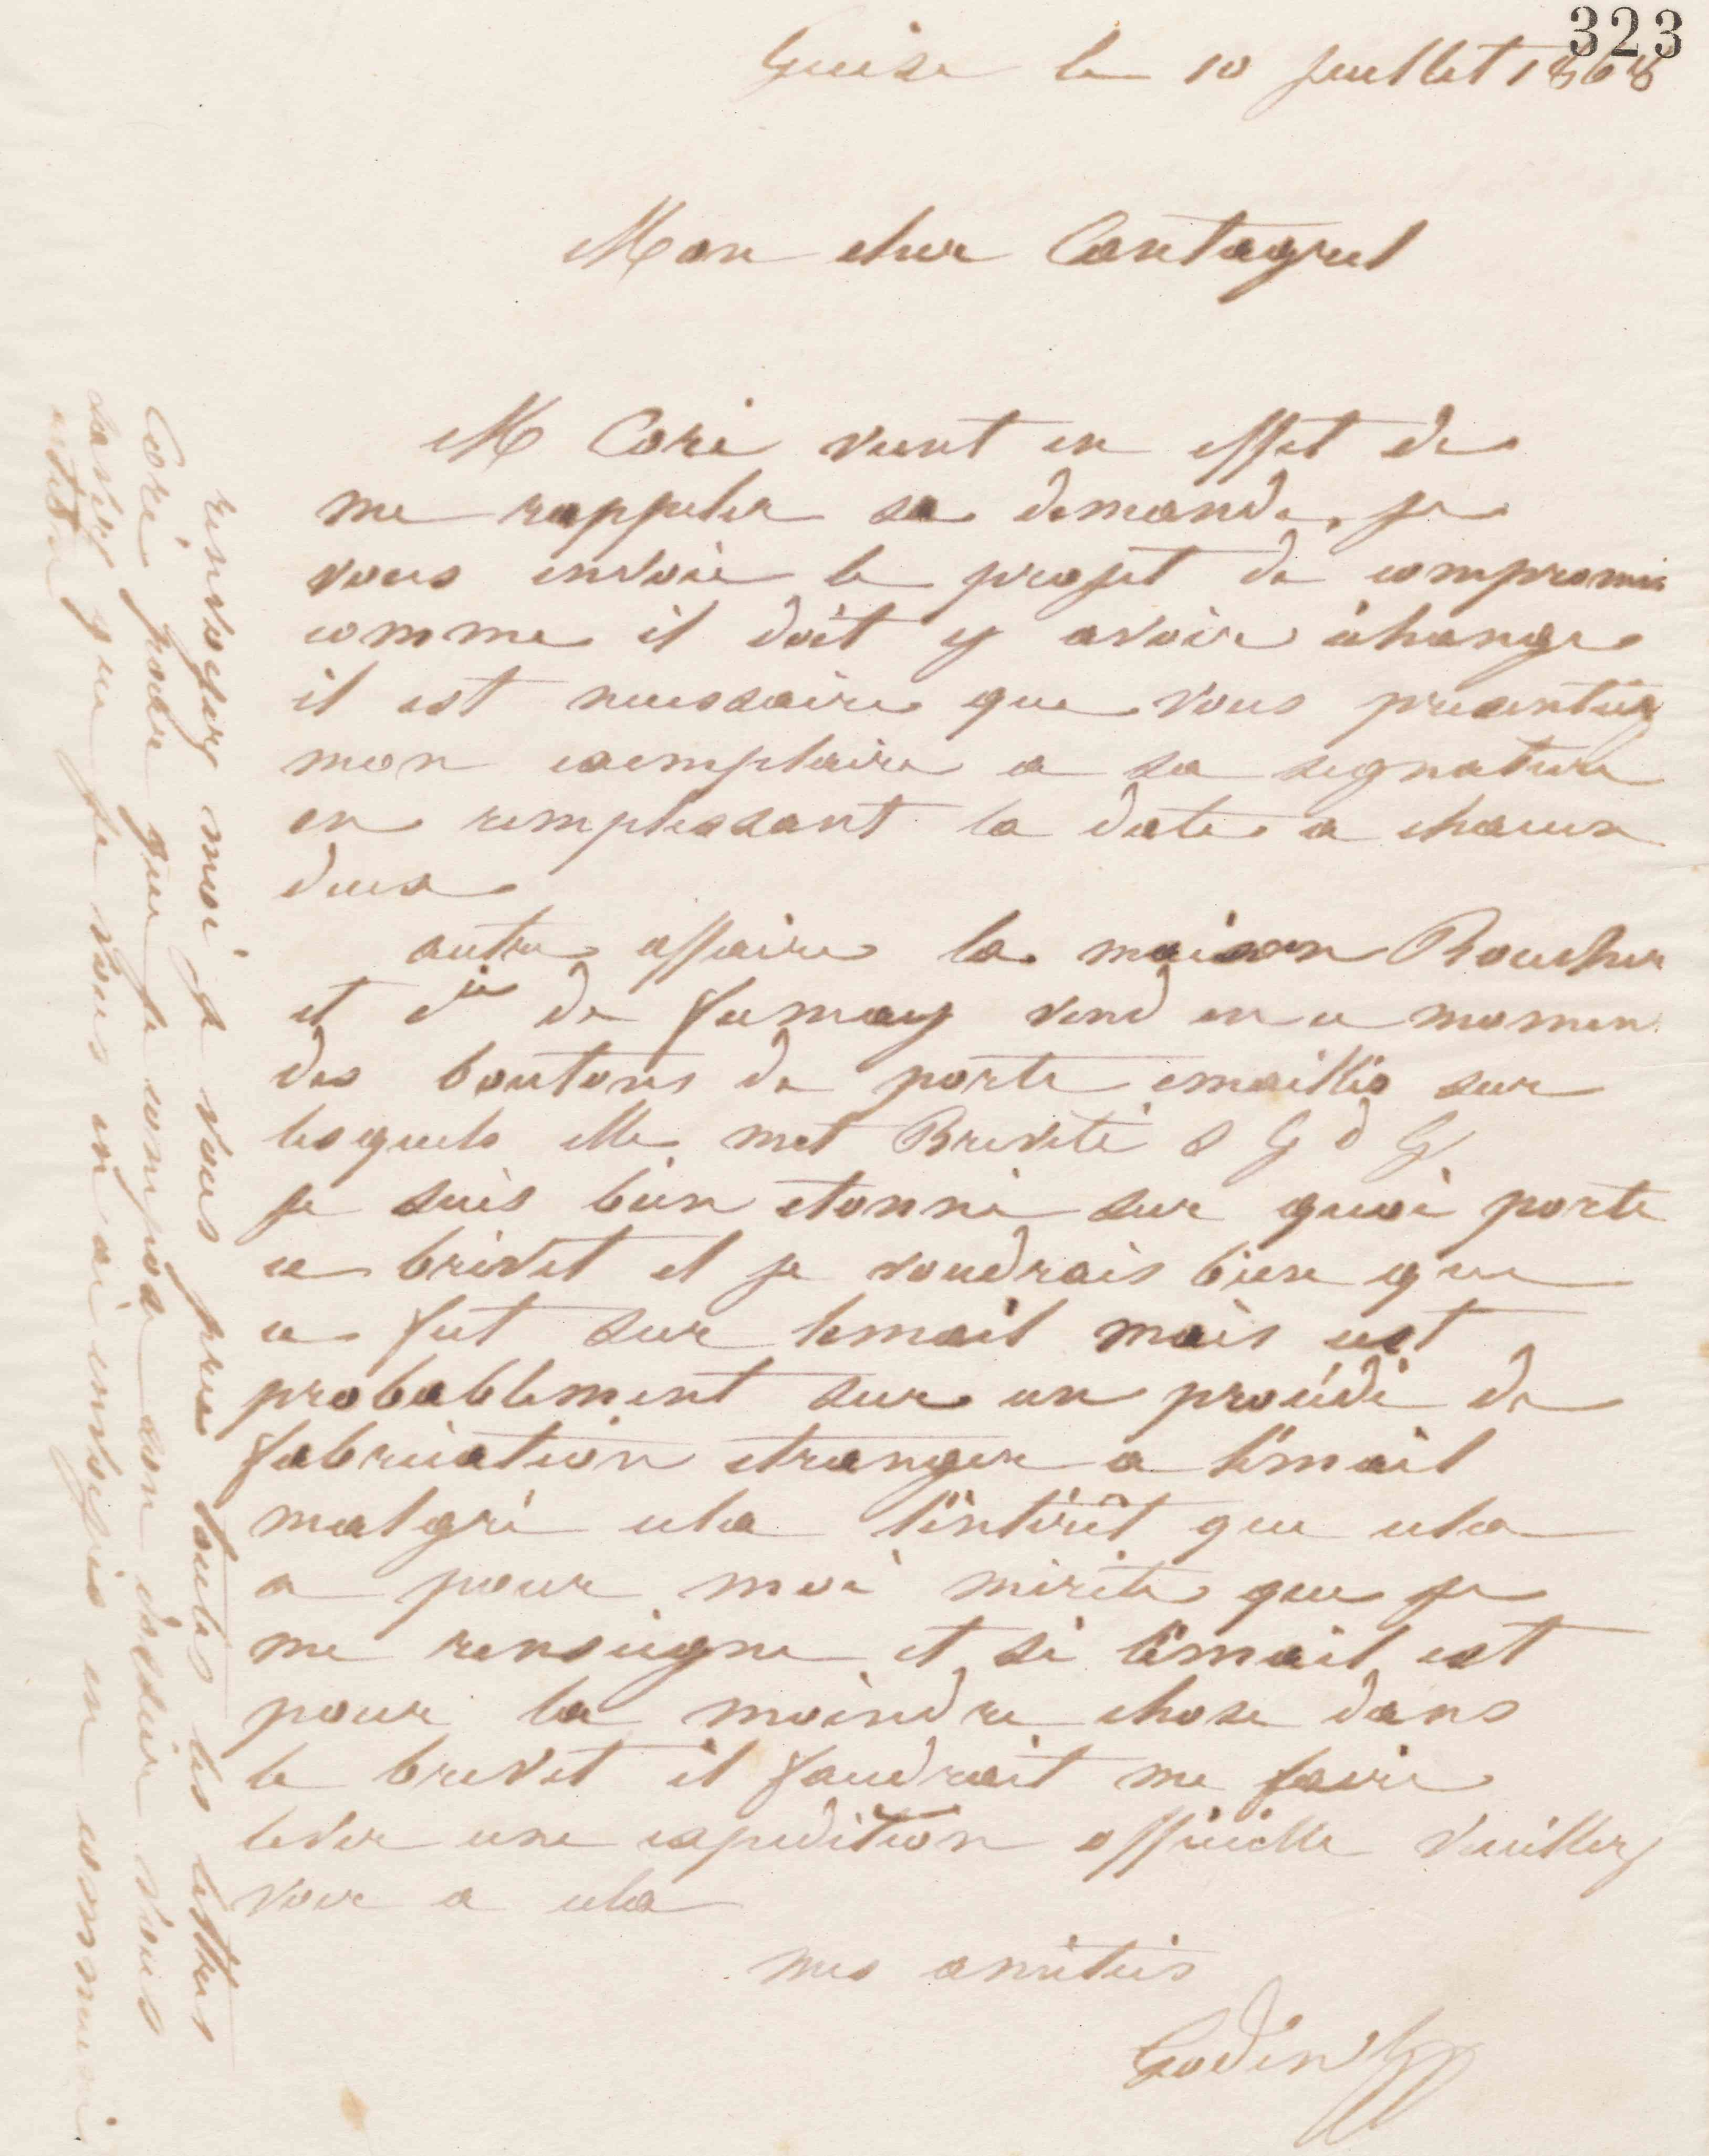 323
Guise le 10 juillet 1868
Mon cher Cantagrel
M Coré vient en effet de
me rappeler sa demande, je
vous envoie le projet de compromis
comme il doit y avoir échange
il est necessaire que vous presentiez
mon exemplaire a sa signature
en remplissant la date a chacun
deux
autre affaire la maison Boucher
et Cie de fumay vend en ce momen
des boutons de porte emaillés sur
lesquels elle met Breveté S G D G
je suis bien etonné sur quoi porte
ce brevet et je voudrais bien que
ce fut sur lemail mais cest
probablement sur un procédé de
fabrication etranger a lémail
malgré cela lintérêt que cela
a pour moi mérite que je
me renseigne et si lémail est
pour la moindre chose dans
le brevet il faudrait me faire
lever une expedition officielle veuillez
voir a cela
mes amitiés
Godin
renvoyez moi je vous prie toutes les lettres
Coré pour que je compose son dossier vous
savez que je vous en ai envoyées en communi